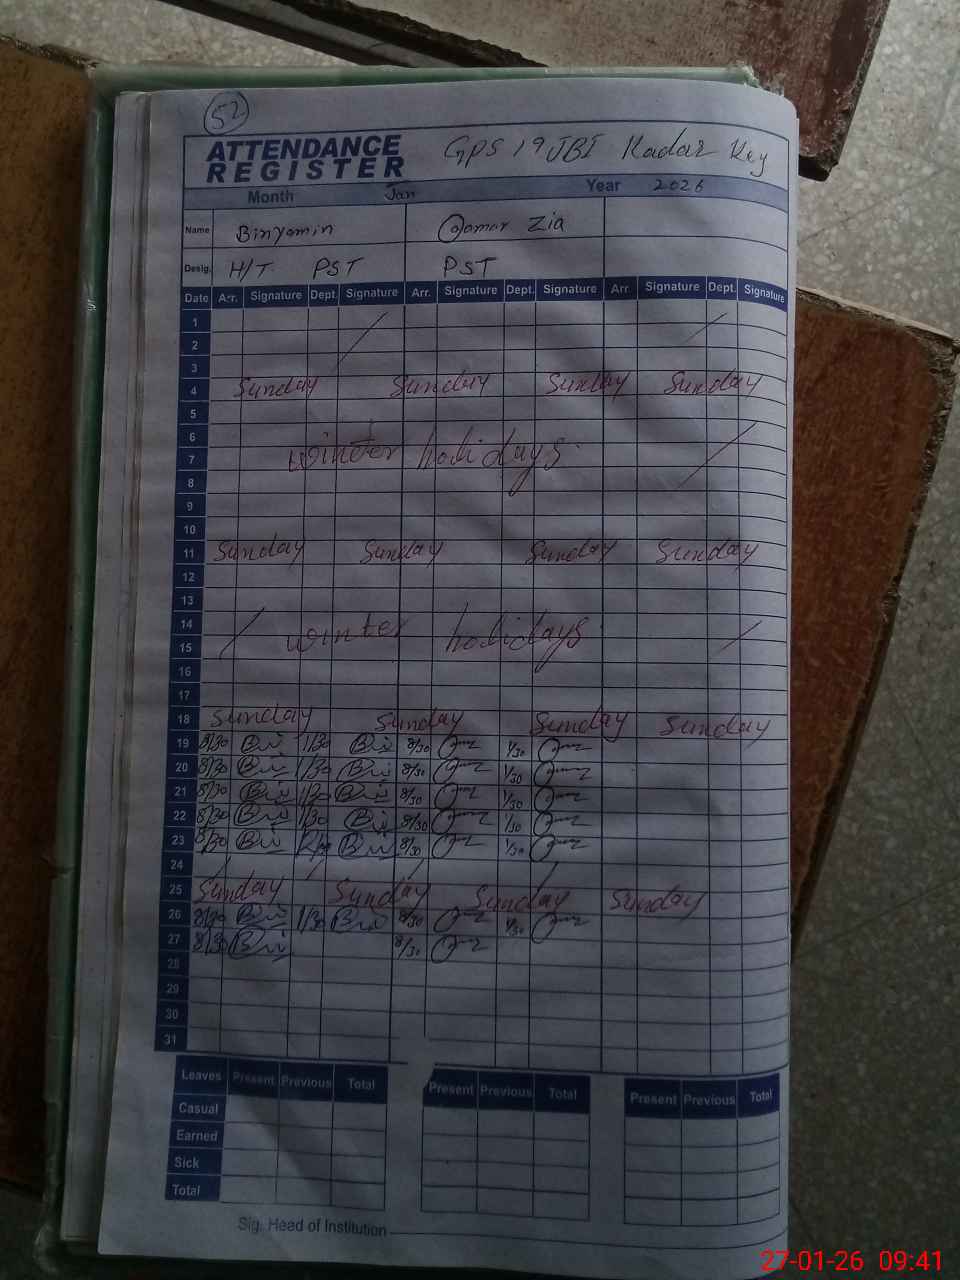 52
ATTENDANCE REGISTER GPS 19 JBI Kadar Key
Month Jan Year 2026
Name Binyamin Qamar Zia
Desig. H/T PST PST
Date Arr. Signature Dept. Signature Arr. Signature Dept. Signature Arr. Signature Dept. Signature
1
2
3
4 Sunday Sunday Sunday Sunday
5
6
7 winter holidays.
8
9
10
11 Sunday Sunday Sunday Sunday
12
13
14
15 winter holidays
16
17
18 Sunday Sunday Sunday Sunday
19 8/30 1/30 8/30 1/30
20 8/30 1/30 8/30 1/30
21 8/30 1/30 8/30 1/30
22 8/30 1/30 8/30 1/30
23 8/30 8/30 1/30
24
25 Sunday Sunday Sunday Sunday
26 8/30 1/30 8/30 1/30
27 8/30 8/30
28
29
30
31
Leaves Present Previous Total Present Previous Total Present Previous Total
Casual
Earned
Sick
Total
Sig. Head of Institution
27-01-26 09:41